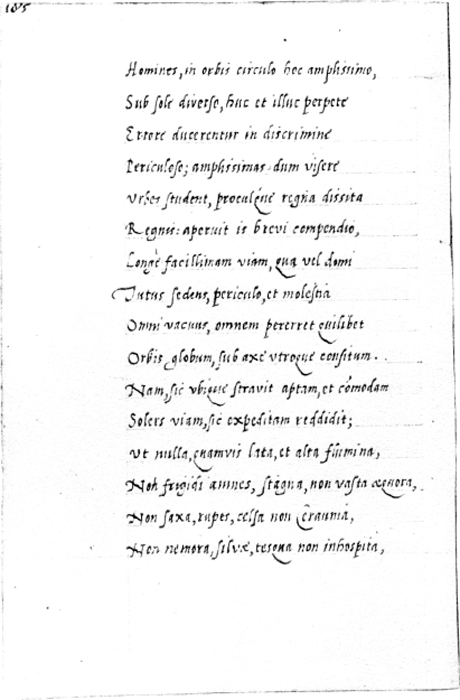 185
Homines, in orbis circulo hoc amplissimo,
Sub sole diverso, huc et illuc perpete
Errore ducerentur in discrimine
Periculoso; amplissimas dum visere
Urbes student, proculque regna dissita
Regnis: aperuit is brevi compendio,
Longè facillimam viam, qua vel domi
Tutus sedens, periculo, et molestia
Omni vacuus, omnem pererret quilibet
Orbis globum, sub axe utroque consitum.
Nam, sic ubique stravit aptam, et cōmodam
Solers viam, sic expeditam reddidit;
Ut nulla, quamvis lata, et alta flumina,
Non frigidi amnes, stagna, non vasta æquora,
Non saxa, rupes, celsa non Ceraunia,
Non nemora, silvæ, tesqua non inhospita,